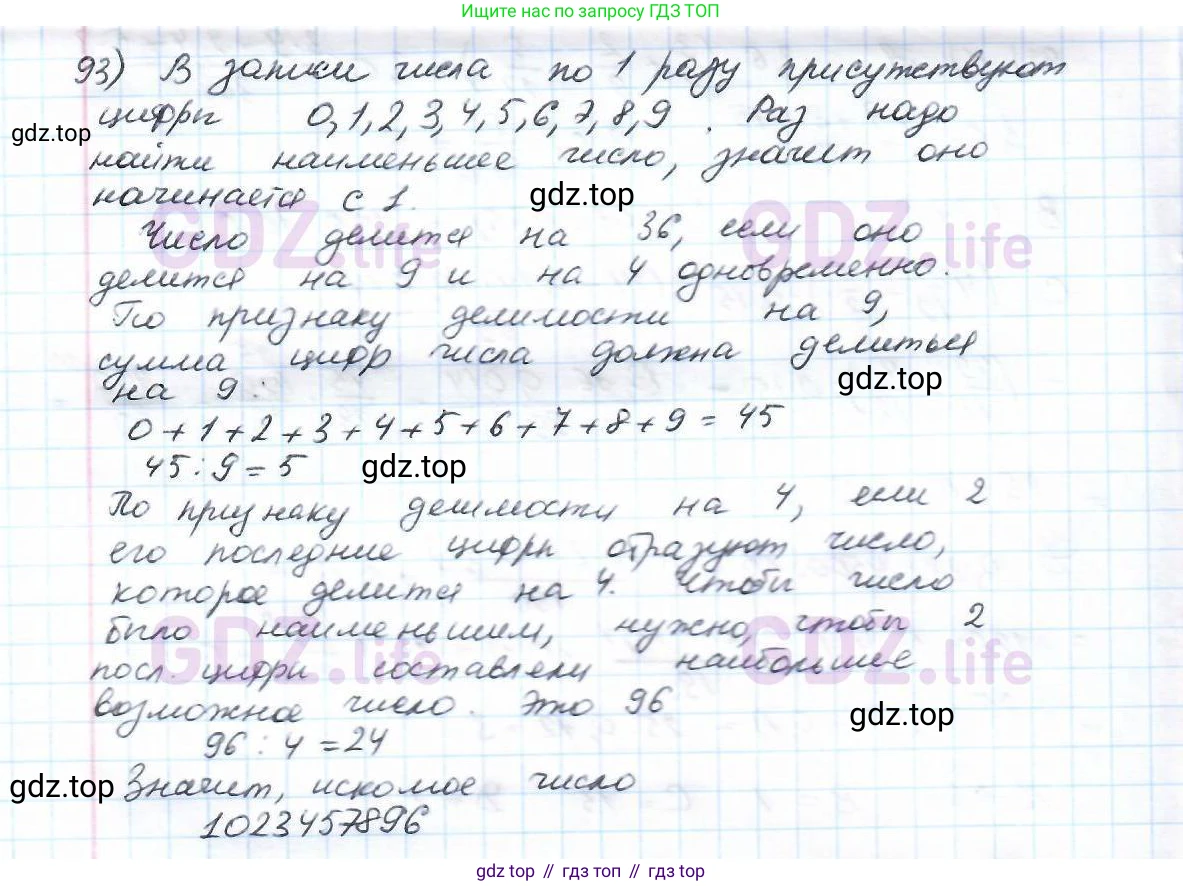 Ищите нас по запросу ГДЗ ТОП
93) В записи числа по 1 разу присутствуют
цифры 0, 1, 2, 3, 4, 5, 6, 7, 8, 9 . Раз надо
gdz.top
найти наименьшее число, значит оно
начинается с 1.
gdz.top
GDZ.life GDZ.life
Число делится на 36, если оно
делится на 9 и на 4 одновременно.
По признаку делимости на 9,
сумма цифр числа должна делиться
на 9:
gdz.top
0 + 1 + 2 + 3 + 4 + 5 + 6 + 7 + 8 + 9 = 45
45 : 9 = 5
gdz.top
По признаку делимости на 4, если 2
его последние цифры образуют число,
которое делится на 4. Чтобы число
было наименьшим, нужно, чтобы 2
GDZ.life GDZ.life
посл. цифры составляли наибольшее
возможное число. Это 96
gdz.top
96 : 4 = 24
gdz.top
Значит, искомое число
1023457896
gdz.top // гдз топ // gdz.top